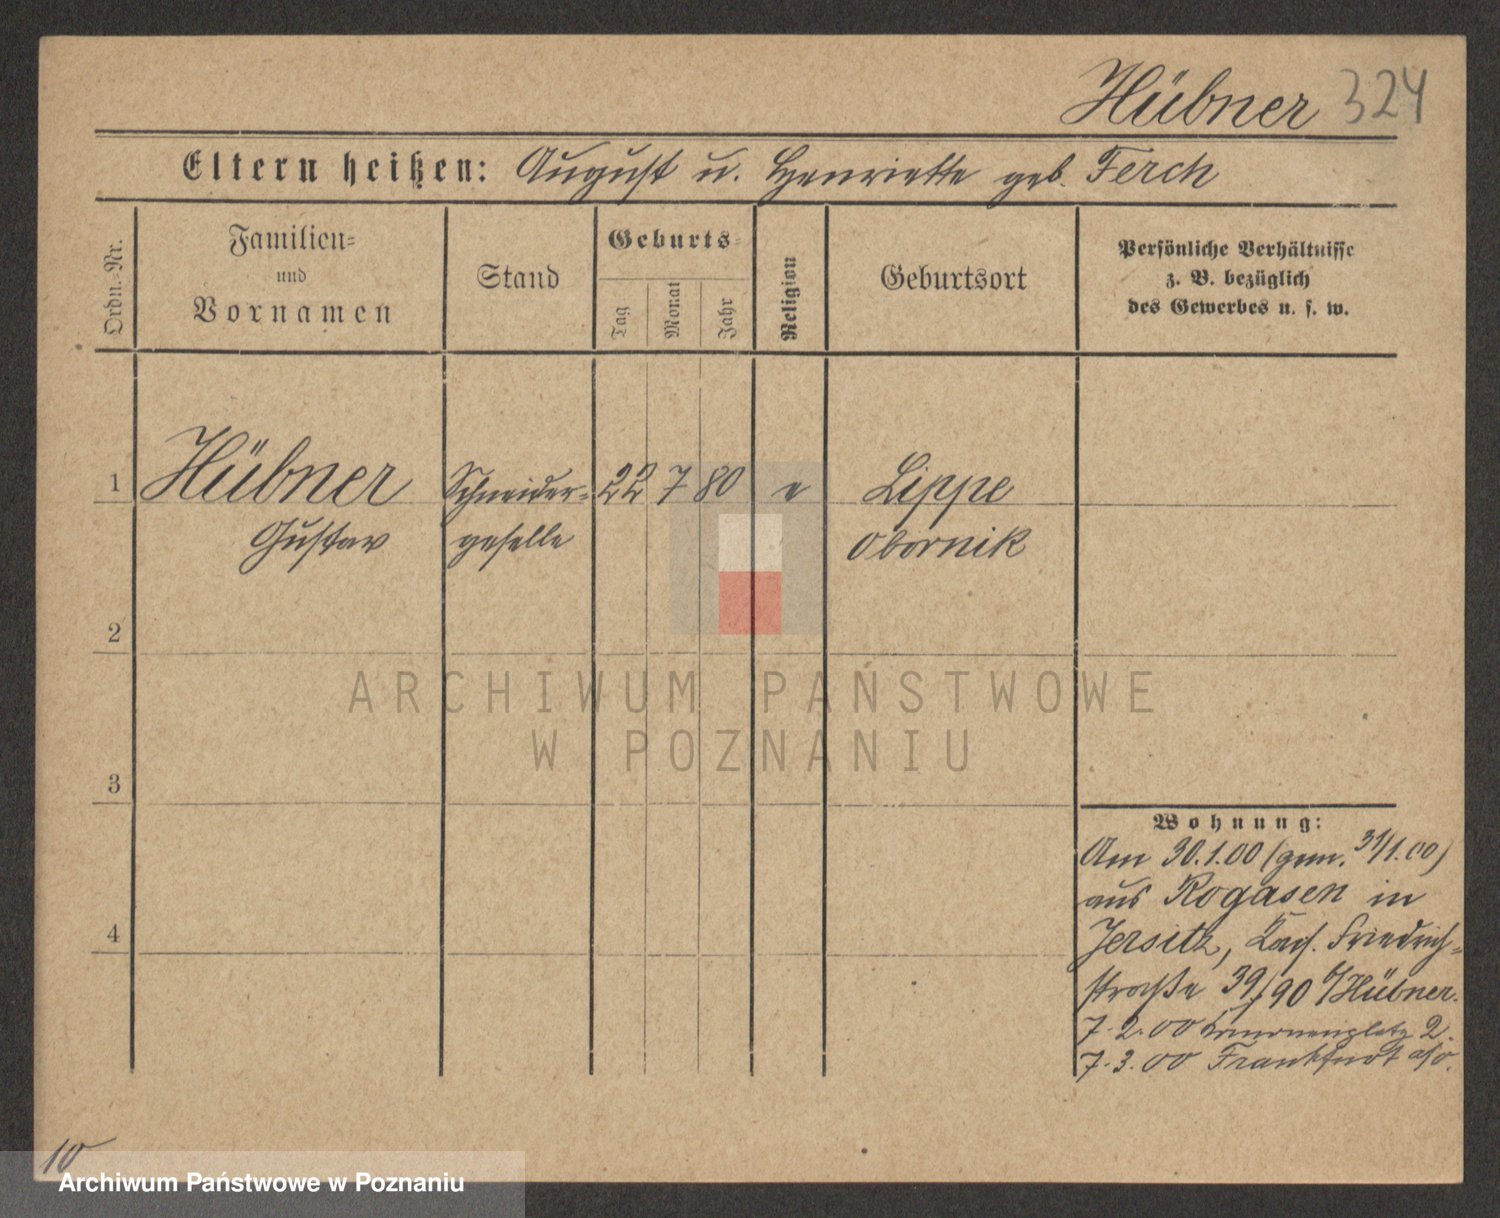 Hübner 324
Eltern heißen: August u. Henriette geb. Ferch
Ordn.-Nr.
Familien-
und
Vornamen
Stand
Geburts-
Tag
Monat
Jahr
Religion
Geburtsort
Persönliche Verhältnisse
z. B. bezüglich
des Gewerbes u. s. w.
1 Hübner Schneider- 22 7 80 e Lippe
Gustav geselle Obornik
2
ARCHIWUM PAŃSTWOWE
W POZNANIU
3
Wohnung:
Am 30.1.00 (gem. 31/1.00)
aus Rogasen in
4
Jersitz, Friedrich-
straße 39/90 b/Hübner.
7.2.00 2.
7.3.00 Frankfurt a/O.
10
Archiwum Państwowe w Poznaniu